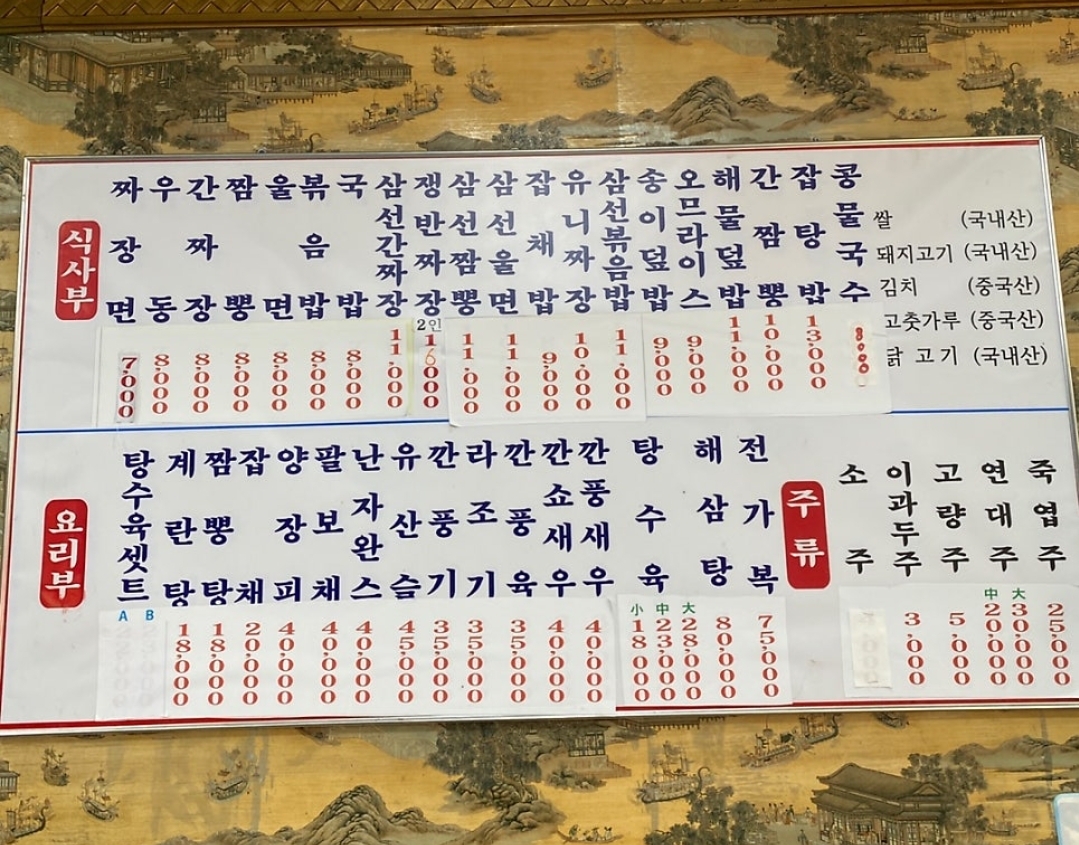 식사부
짜장면 7,000
우동 8,000
간짜장 8,000
짬뽕 8,000
울면 8,000
볶음밥 8,000
국밥 8,000
삼선간짜장 11,000
쟁반짜장 2인 16,000
삼선짬뽕 11,000
삼선울면 11,000
잡채밥 9,000
유니짜장 10,000
삼선볶음밥 11,000
송이덮밥 9,000
오므라이스 9,000
해물덮밥 11,000
간짬뽕 10,000
잡탕밥 13,000
콩물국수 8000
쌀 (국내산)
돼지고기 (국내산)
김치 (중국산)
고춧가루 (중국산)
닭고기 (국내산)
요리부
탕수육셋트 A B
계란탕 18,000
짬뽕탕 18,000
잡채 20,000
양장피 40,000
팔보채 40,000
난자완스 40,000
유산슬 45,000
깐풍기 35,000
라조기 35,000
깐풍육 35,000
깐쇼새우 40,000
깐풍새우 40,000
탕수육 小 18,000 中 23,000 大 28,000
해삼탕 80,000
전가복 75,000
주류
소주
이과두주 3,000
고량주 5,000
연대주 中 20,000 大 30,000
죽엽주 25,000